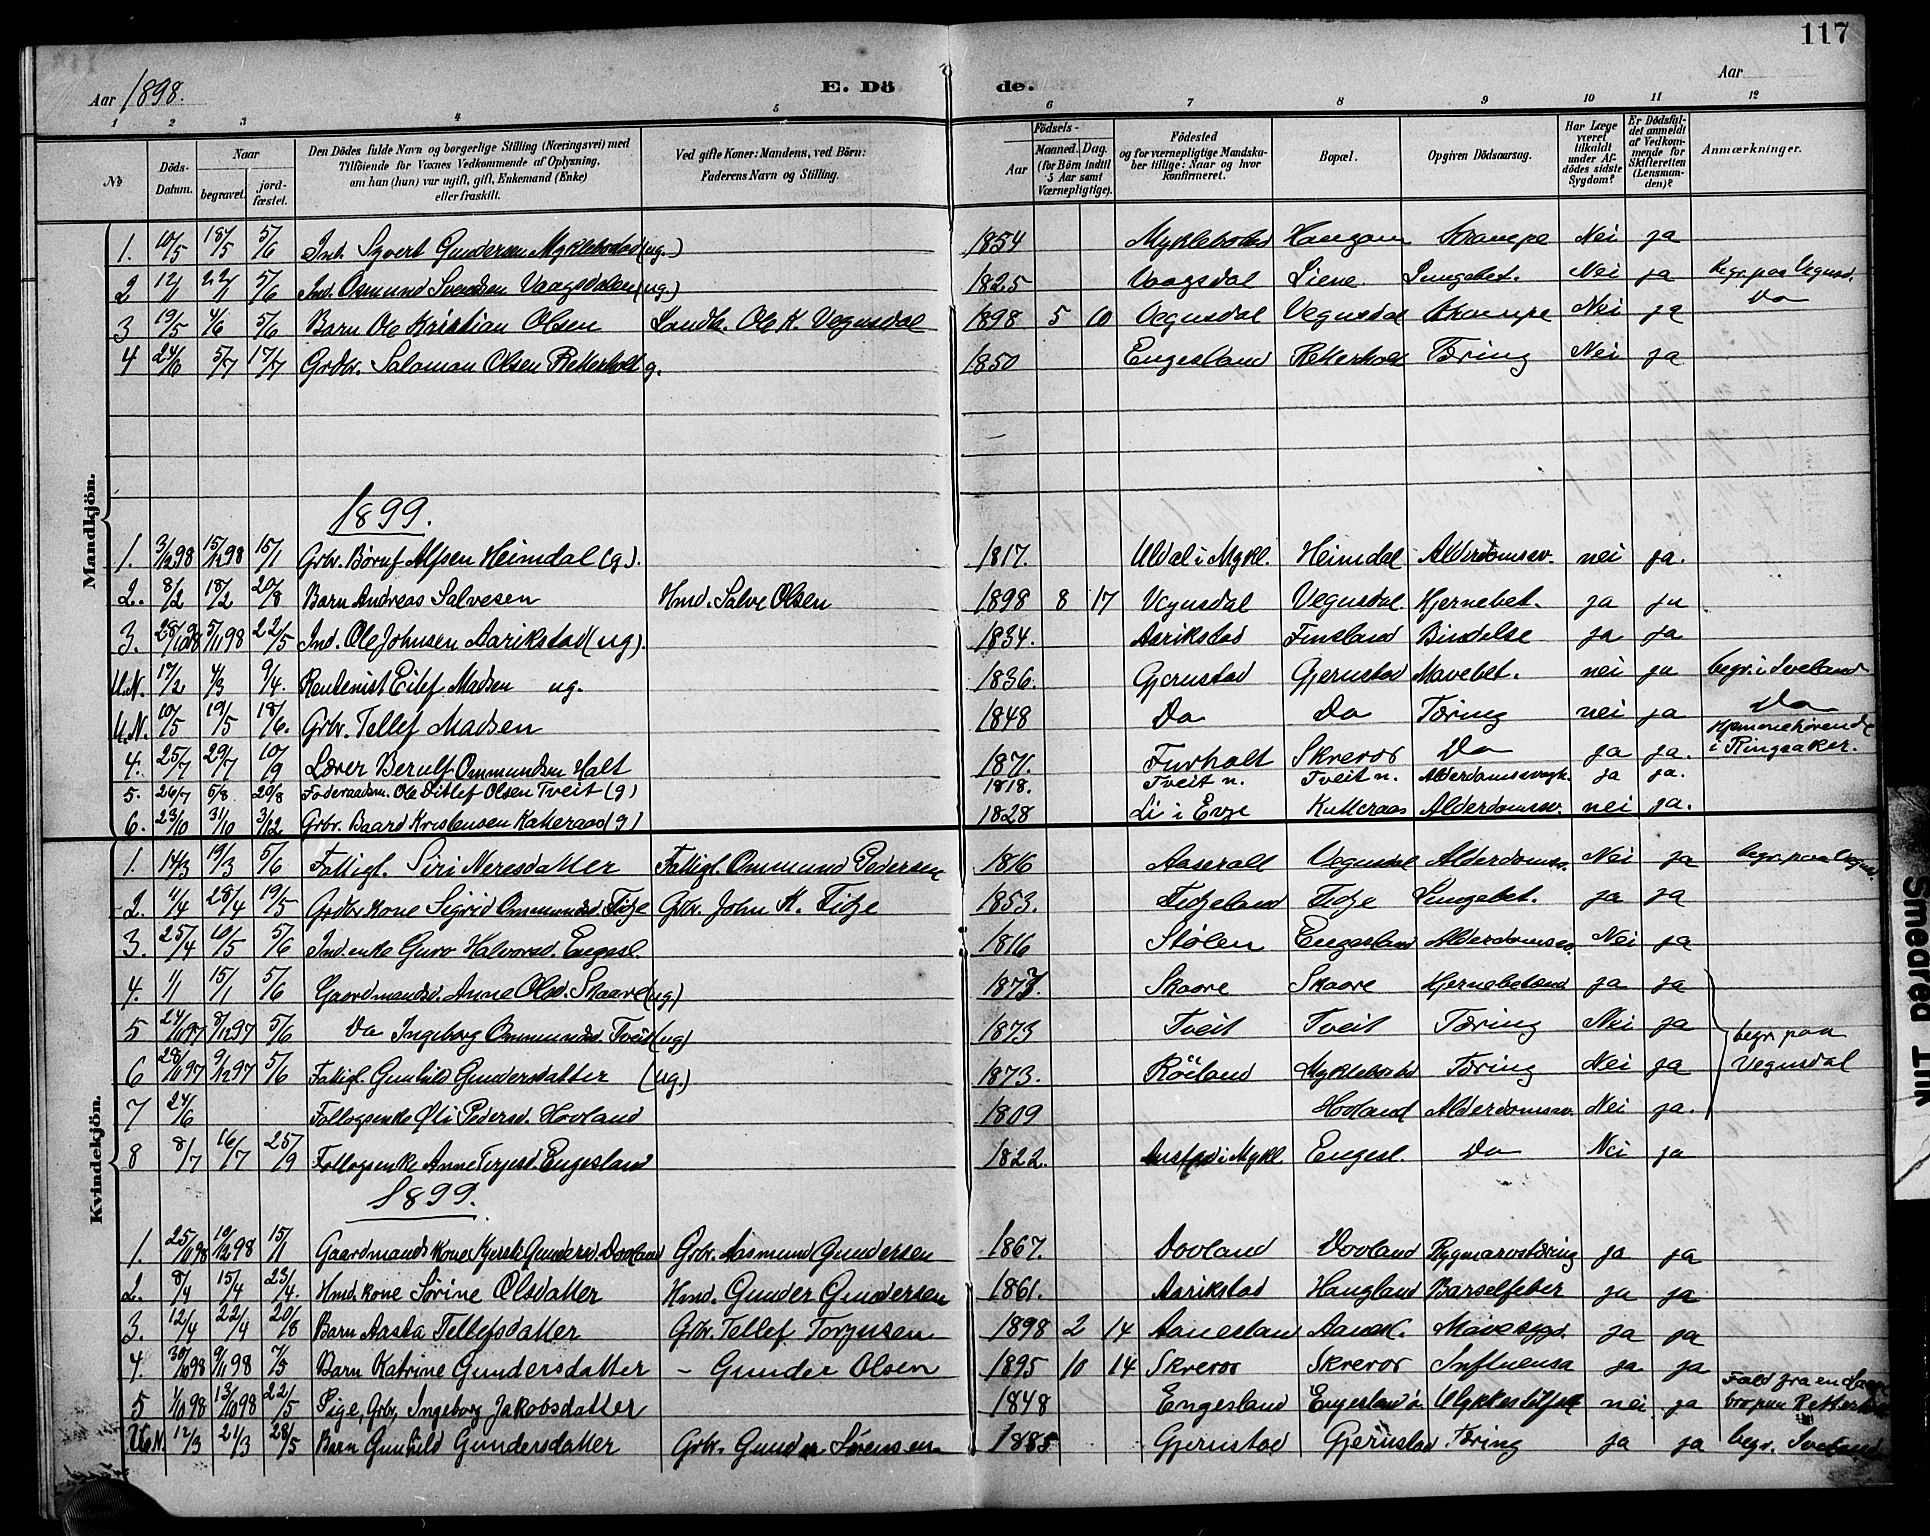 117
Aar 1898. E. Dö de. Aar
1 2 3 4 5 6 7 8 9 10 11 12
No Döds-Datum. Naar begravet. jord-fæstet. Den Dödes fulde Navn og borgerlige Stilling (Næringsvei) med Tilföiende for Voxnes Vedkommende af Oplysning, om han (hun) var ugift, gift, Enkemand (Enke) eller fraskilt. Ved gifte Koner: Mandens, ved Börn: Faderens Navn og Stilling. Födsels- Aar Maaned. Dag. (for Börn indtil 5 Aar samt Værnepligtige). Födested og for værnepligtige Mandska-ber tillige: Naar og hvor konfirmeret. Bopæl. Opgiven Dödsaarsag. Har Læge været tilkaldt under Af-dödes sidste Sygdom? Er Dödsfal-det anmeldt af Vedkom-mende for Skifteretten (Lensman-den)? Anmærkninger.
Mandkjön.
1. 10/5 18/5 5/6 Ind. Syvert Gundersen Myklebostad (ug.) 1854 Myklebostad Haugom Krampe Nei ja
2 12/1 22/1 5/6 Ind. Osmund Svendsen Vaagsdalen (ug.) 1825 Vaagsdal Liene Lungebet. Nei ja begr. paa Vegusd.
3 19/5 4/6 5/6 Barn Ole Kristian Olsen Landh. Ole K. Vegusdal 1898 5 10 Vegusdal Vegusdal Krampe Nei ja Do
4 24/6 5/7 17/7 Grdbr. Salomon Olsen Retterholt g. 1850 Engesland Retterholt Tæring Nei ja
1899.
1. 3/12 98 15/12 98 15/1 Grbr. Børuf Alfsen Heimdal (g). 1817. Uldal i Mykl. Heimdal Alderdomssv. nei ja.
2. 8/2 18/2 20/8 Barn Andreas Salvesen Hmd. Salve Olsen 1898 8 17 Vegusdal Vegusdal Hjernebet. ja ja
3. 28/10 98 5/11 98 22/5 Ind. Ole Johnsen Aarikstad (ug). 1834. Aarikstad Finsland Bindelse ja ja
U.N. 17/2 4/3 9/4. Rentenist Eilef Madsen ug. 1836. Gjerustad Gjerustad Mavebet. nei ja begr. i Iveland
U.N. 10/5 19/5 18/6. Grbr. Tellef Madsen 1848 Do Do Tæring nei ja Do
4. 25/7 29/7 10/9 Lærer Berulf Ommundsen Holt 1871. Furholt Skreros Do ja ja. Hjemmehørende i Ringsaker.
5. 26/7 5/8 20/8 Foderaadsm. Ole Ditlef Olsen Tveit (g) 1818. Tveit n. Tveit n. Alderdomssvagh. ja ja.
6. 23/10 31/10 3/12 Grbr. Baard Kristensen Katteraas (g) 1828 Li i Evje Katteraas Alderdomssv. nei ja.
Kvindekjön.
1. 14/3 19/3 5/6 Fattigl. Siri Neresdatter Fattigl. Ommund Pedersen 1816 Aaseral Vegusdal Alderdomssv. Nei ja begr. paa Vegusd.
2. 11/4 28/4 19/5 Grdbr kone Sigrid Ommundsd. Fidje Grbr. John K. Fidje 1853. Fidjeland Fidje Lungebet. ja ja
3. 25/4 10/5 5/6 Ind. enke Guro Halvorsd. Engesl. 1816 Stølen Engesland Alderdomssv. Nei ja
4. 1/1 15/1 5/6 Gaardmandsd. Anne Olsd. Skaare (ug) 1873. Skaare Skaare Hjernebetænd ja ja
5 24/11 97 8/12 97 5/6 Do Ingeborg Ommundsd. Tveit (ug) 1873 Tveit Tveit Tæring Nei ja begr. paa
6 28/11 97 9/12 97 5/6 Fattigl. Gunhild Gundersdatter (ug.) 1873. Röiland Myklebostad Tæring Nei ja Vegusdal
7 24/6 Follogsenke Oli Pedersd. Hovland 1809 Hovland Alderdomssv. Nei ja.
8 8/7 16/7 25/9 Follogsenke Anne Terjesd. Engesland 1822. i Mykl. Engesl. Do Nei ja
1899.
1. 25/11 98 10/12 98 15/1 Gaardmands kone Kjersti Gundersd. Dovland Grbr. Aasmund Gundersen 1867. Dovland Dovland Rygmarvstæring ja ja
2. 8/4 15/4 23/4. Hmd. kone Sørine Olsdatter Hmd. Gunder Gundersen 1861. Aarikstad Haugland Barselfeber ja ja
3. 12/4 22/4 20/8 Barn Aasta Tellefsdatter Grbr. Tellef Torjusen 1898 2 14 Aanesland Aanesl. Mavesygd. ja ja
4. 30/10 98 9/11 98 7/5 Barn Katrine Gundersdatter – Gunder Olsen 1895 10 14 Skreros Skreros Influensa ja ja
5 1/10 98 13/10 98 22/5 Pige, Grbr, Ingeborg Jakobsdatter 1848 Engesland Engesland ö. Ulykkestilfæl nei ja Fald fra en bro paa Retterholt
U.N. 12/3 21/3 28/5 Barn Gunhild Gundersdatter Grbr. Gunder Sørensen 1885 Gjerustad Gjerustad Tæring ja ja begr. Iveland
Smeared Ink